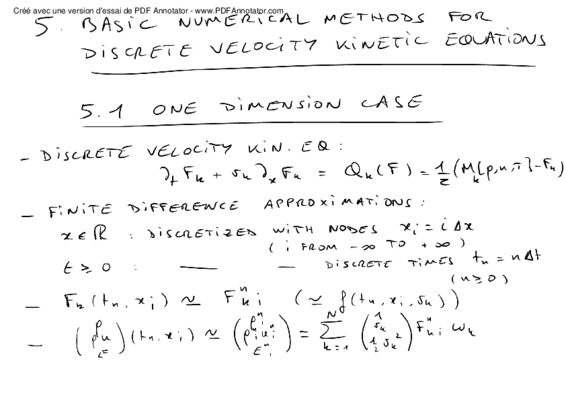 Créé avec une version d'essai de PDF Annotator - www.PDFAnnotator.com
5. BASIC NUMERICAL METHODS FOR
DISCRETE VELOCITY KINETIC EQUATIONS
5.1 ONE DIMENSION CASE
- DISCRETE VELOCITY KIN. EQ :
∂_t F_k + v_k ∂_x F_k = Q_k(F) = 1/τ (M_k[ρ,u,T] - F_k)
- FINITE DIFFERENCE APPROXIMATIONS :
x ∈ ℝ : DISCRETIZED WITH NODES x_i = i Δx
( i FROM -∞ TO +∞ )
t ≥ 0 : —— — DISCRETE TIMES t_n = n Δt
( n ≥ 0 )
- F_k (t_n, x_i) ≃ F_k^n_i ( ≃ f(t_n, x_i, v_k) )
- (ρ ρu E) (t_n, x_i) ≃ (ρ_i^n ρ_i^n u_i^n E_i^n) = Σ_{k=1}^N (1 v_k 1/2 v_k^2) F_k^n_i ω_k